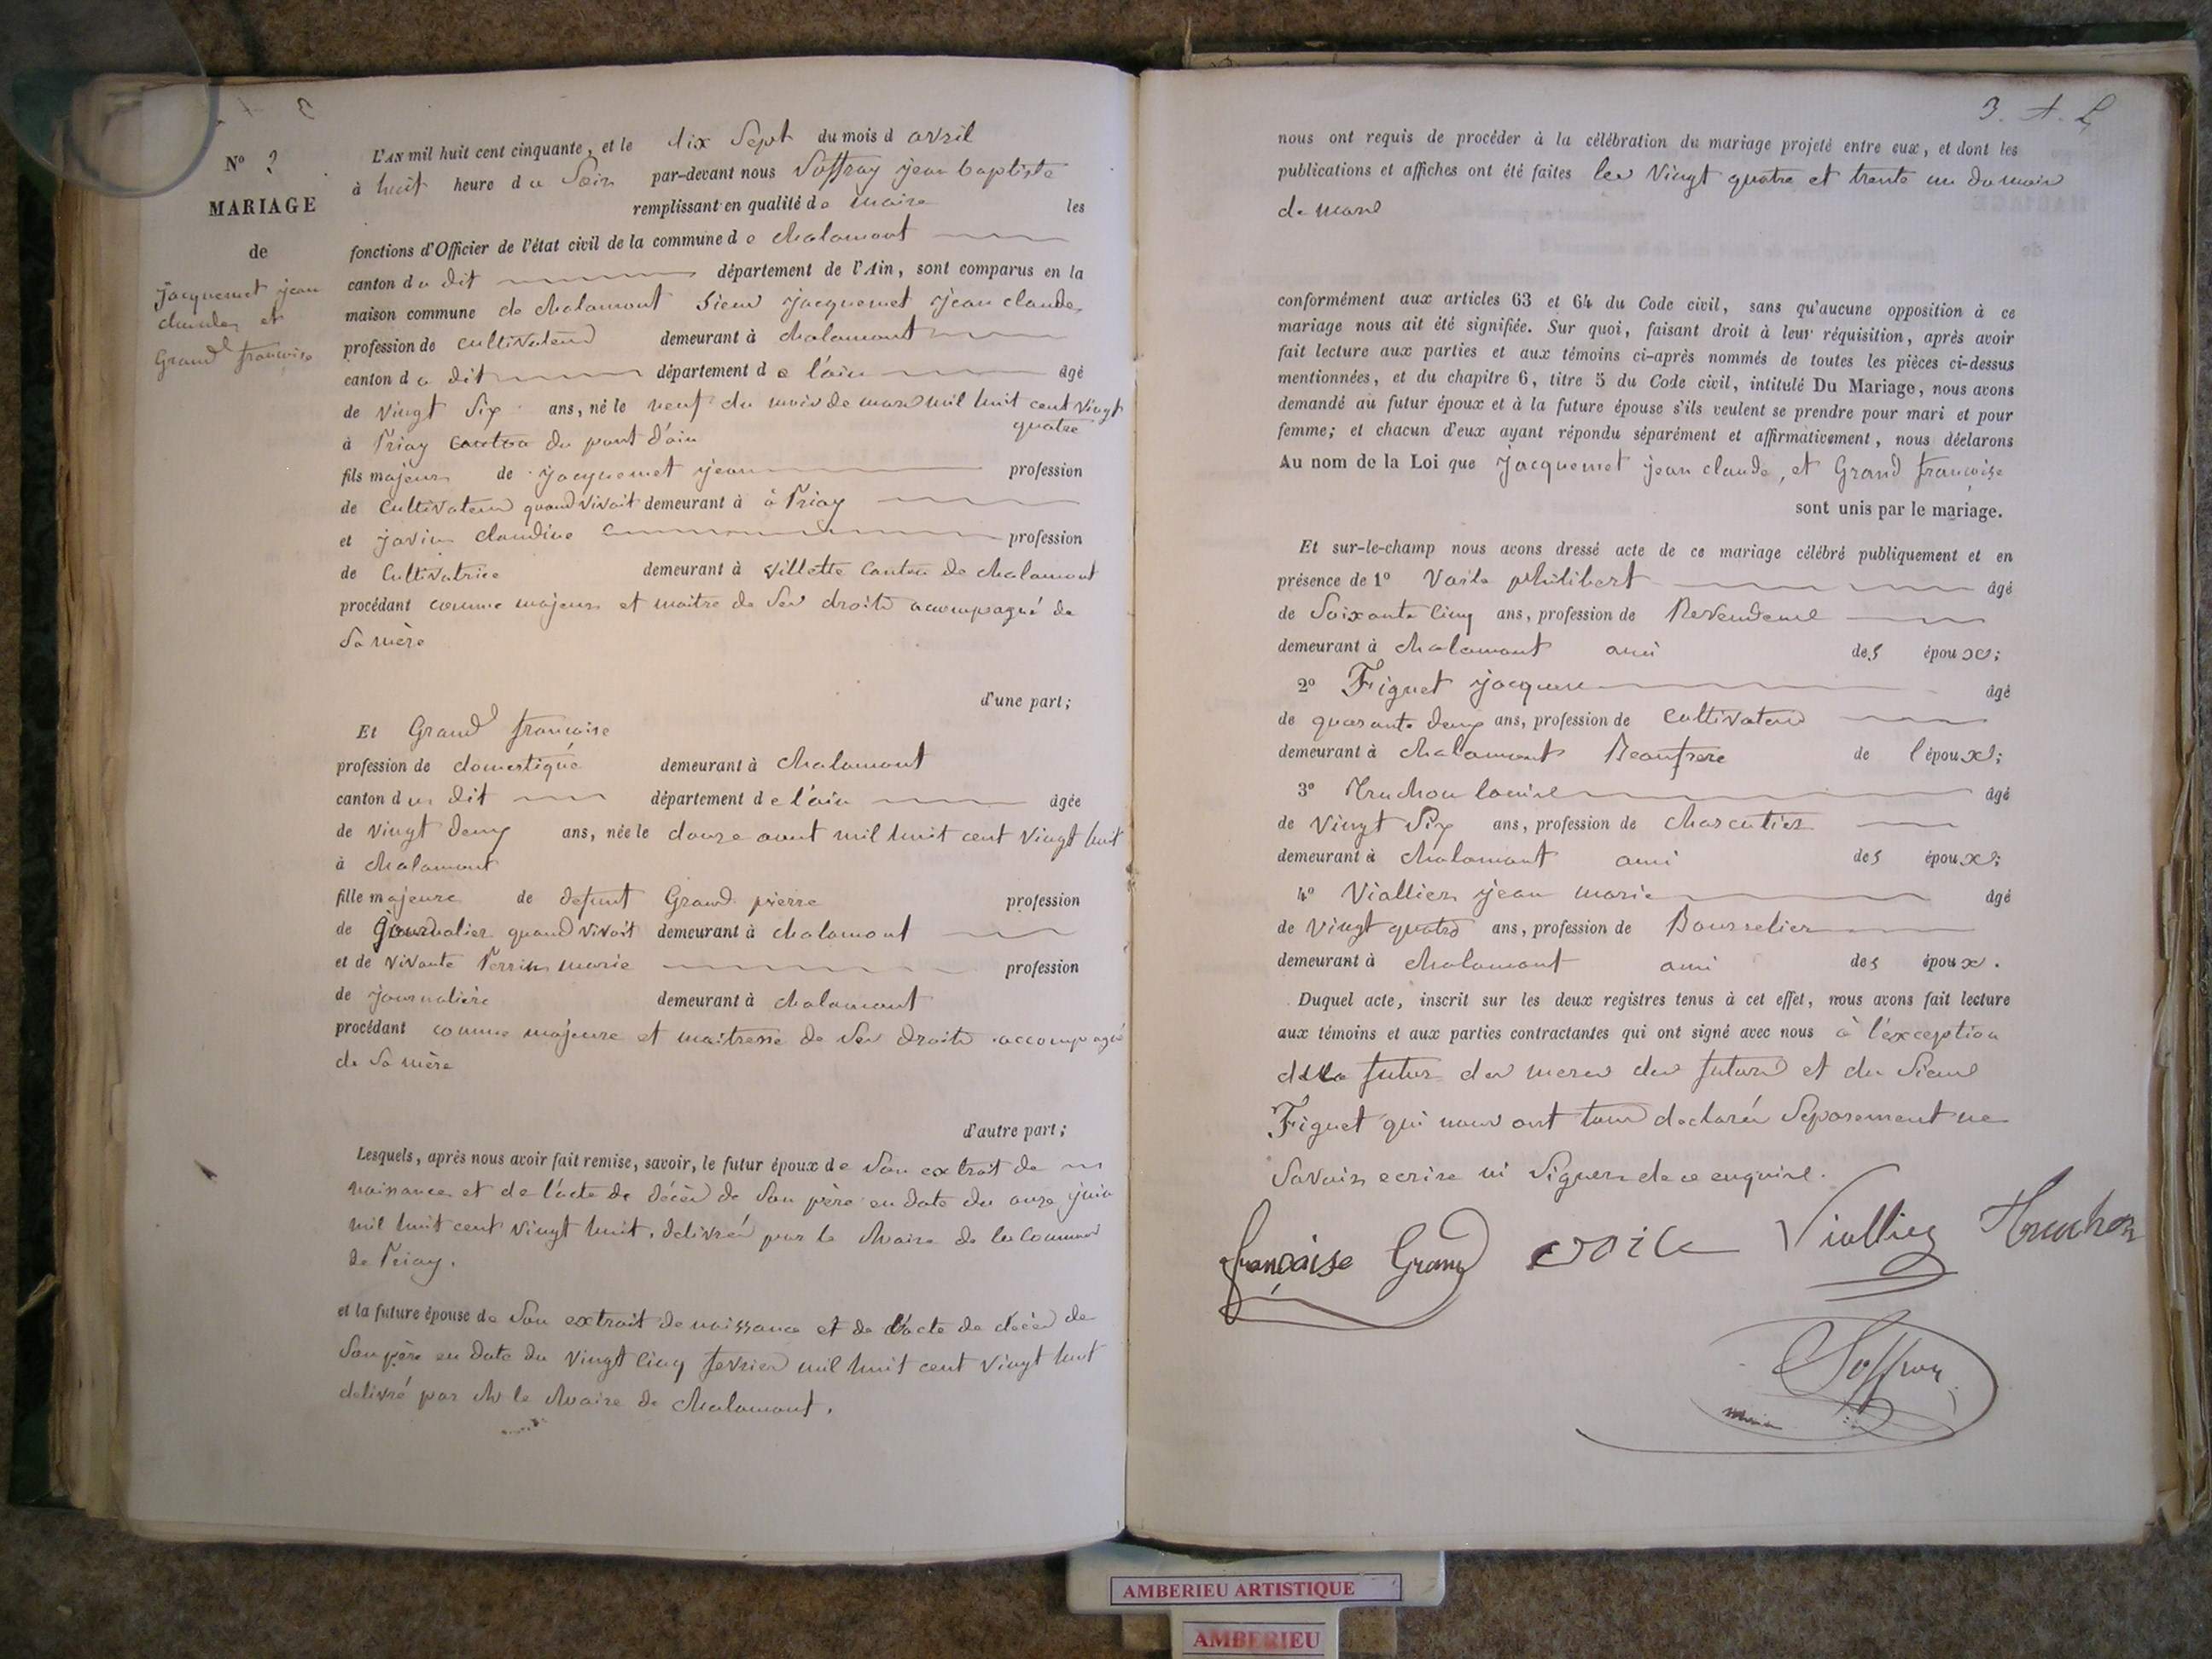 N° 2
MARIAGE
de
Jacquemet jean
claude, et
Grand francoise
L'AN mil huit cent cinquante, et le dix Sept du mois d avril
à huit heure du Soir par-devant nous Soffray jean baptiste
remplissant en qualité de maire les
fonctions d'Officier de l'état civil de la commune de chalamont
canton du dit département de l'Ain, sont comparus en la
maison commune de chalamont Sieur jacquemet jean claude,
profession de cultivateur demeurant à chalamont
canton du dit département de l'ain âgé
de vingt Six ans, né le neuf du mois de mars mil huit cent vingt
quatre
à Priay canton du pont d'ain
fils majeur de jacquemet jean profession
de cultivateur quand vivait demeurant à à Priay
et javin claudine profession
de Cultivatrice demeurant à villette Canton de chalamont
procédant comme majeur et maitre de Ses droits acompagné de
Sa mère
d'une part;
Et Grand francoise
profession de domestique demeurant à chalamont
canton du dit département de l'ain âgée
de vingt deux ans, née le douze aout mil huit cent vingt huit
à chalamont
fille majeure de defunt Grand pierre profession
de journalier quand vivait demeurant à chalamont
et de vivante Perrin marie profession
de journalière demeurant à chalamont
procédant comme majeure et maitresse de Ses droits accompagné
de Sa mère
d'autre part;
Lesquels, après nous avoir fait remise, savoir, le futur époux de Son extrait de
naissance et de l'acte de décès de Son père en date du onze juin
mil huit cent vingt huit, delivrés par le Maire de la Commune
de Priay.
et la future épouse de Son extrait de naissance et de l'acte de décès de
Son père en date du vingt cinq fevrier mil huit cent vingt huit
delivré par Mr le Maire de Chalamont.
3. A. L
nous ont requis de procéder à la célébration du mariage projeté entre eux, et dont les
publications et affiches ont été faites les vingt quatre et trente un du mois
de mars
conformément aux articles 63 et 64 du Code civil, sans qu'aucune opposition à ce
mariage nous ait été signifiée. Sur quoi, faisant droit à leur réquisition, après avoir
fait lecture aux parties et aux témoins ci-après nommés de toutes les pièces ci-dessus
mentionnées, et du chapitre 6, titre 5 du Code civil, intitulé Du Mariage, nous avons
demandé au futur époux et à la future épouse s'ils veulent se prendre pour mari et pour
femme; et chacun d'eux ayant répondu séparément et affirmativement, nous déclarons
Au nom de la Loi que Jacquemet jean claude, et Grand francoise
sont unis par le mariage.
Et sur-le-champ nous avons dressé acte de ce mariage célébré publiquement et en
présence de 1° Voile philibert âgé
de Soixante Cinq ans, profession de Revendeur
demeurant à chalamont ami des époux;
2° Figuet jacques âgé
de quarante deux ans, profession de cultivateur
demeurant à chalamont Beaufrere de l'époux;
3° Truchon louis âgé
de vingt Six ans, profession de charcutier
demeurant à chalamont ami des époux;
4° Viallier jean marie âgé
de vingt quatre ans, profession de Bourrelier
demeurant à chalamont ami des époux.
Duquel acte, inscrit sur les deux registres tenus à cet effet, nous avons fait lecture
aux témoins et aux parties contractantes qui ont signé avec nous à l'exception
futur des meres des futurs et du Sieur
Figuet qui nous ont tous declarés Separement ne
Savoir ecrire ni Signer de ce enquis.
françoise Grand voile Viallier Truchon
Soffray
maire
AMBERIEU ARTISTIQUE
AMBERIEU